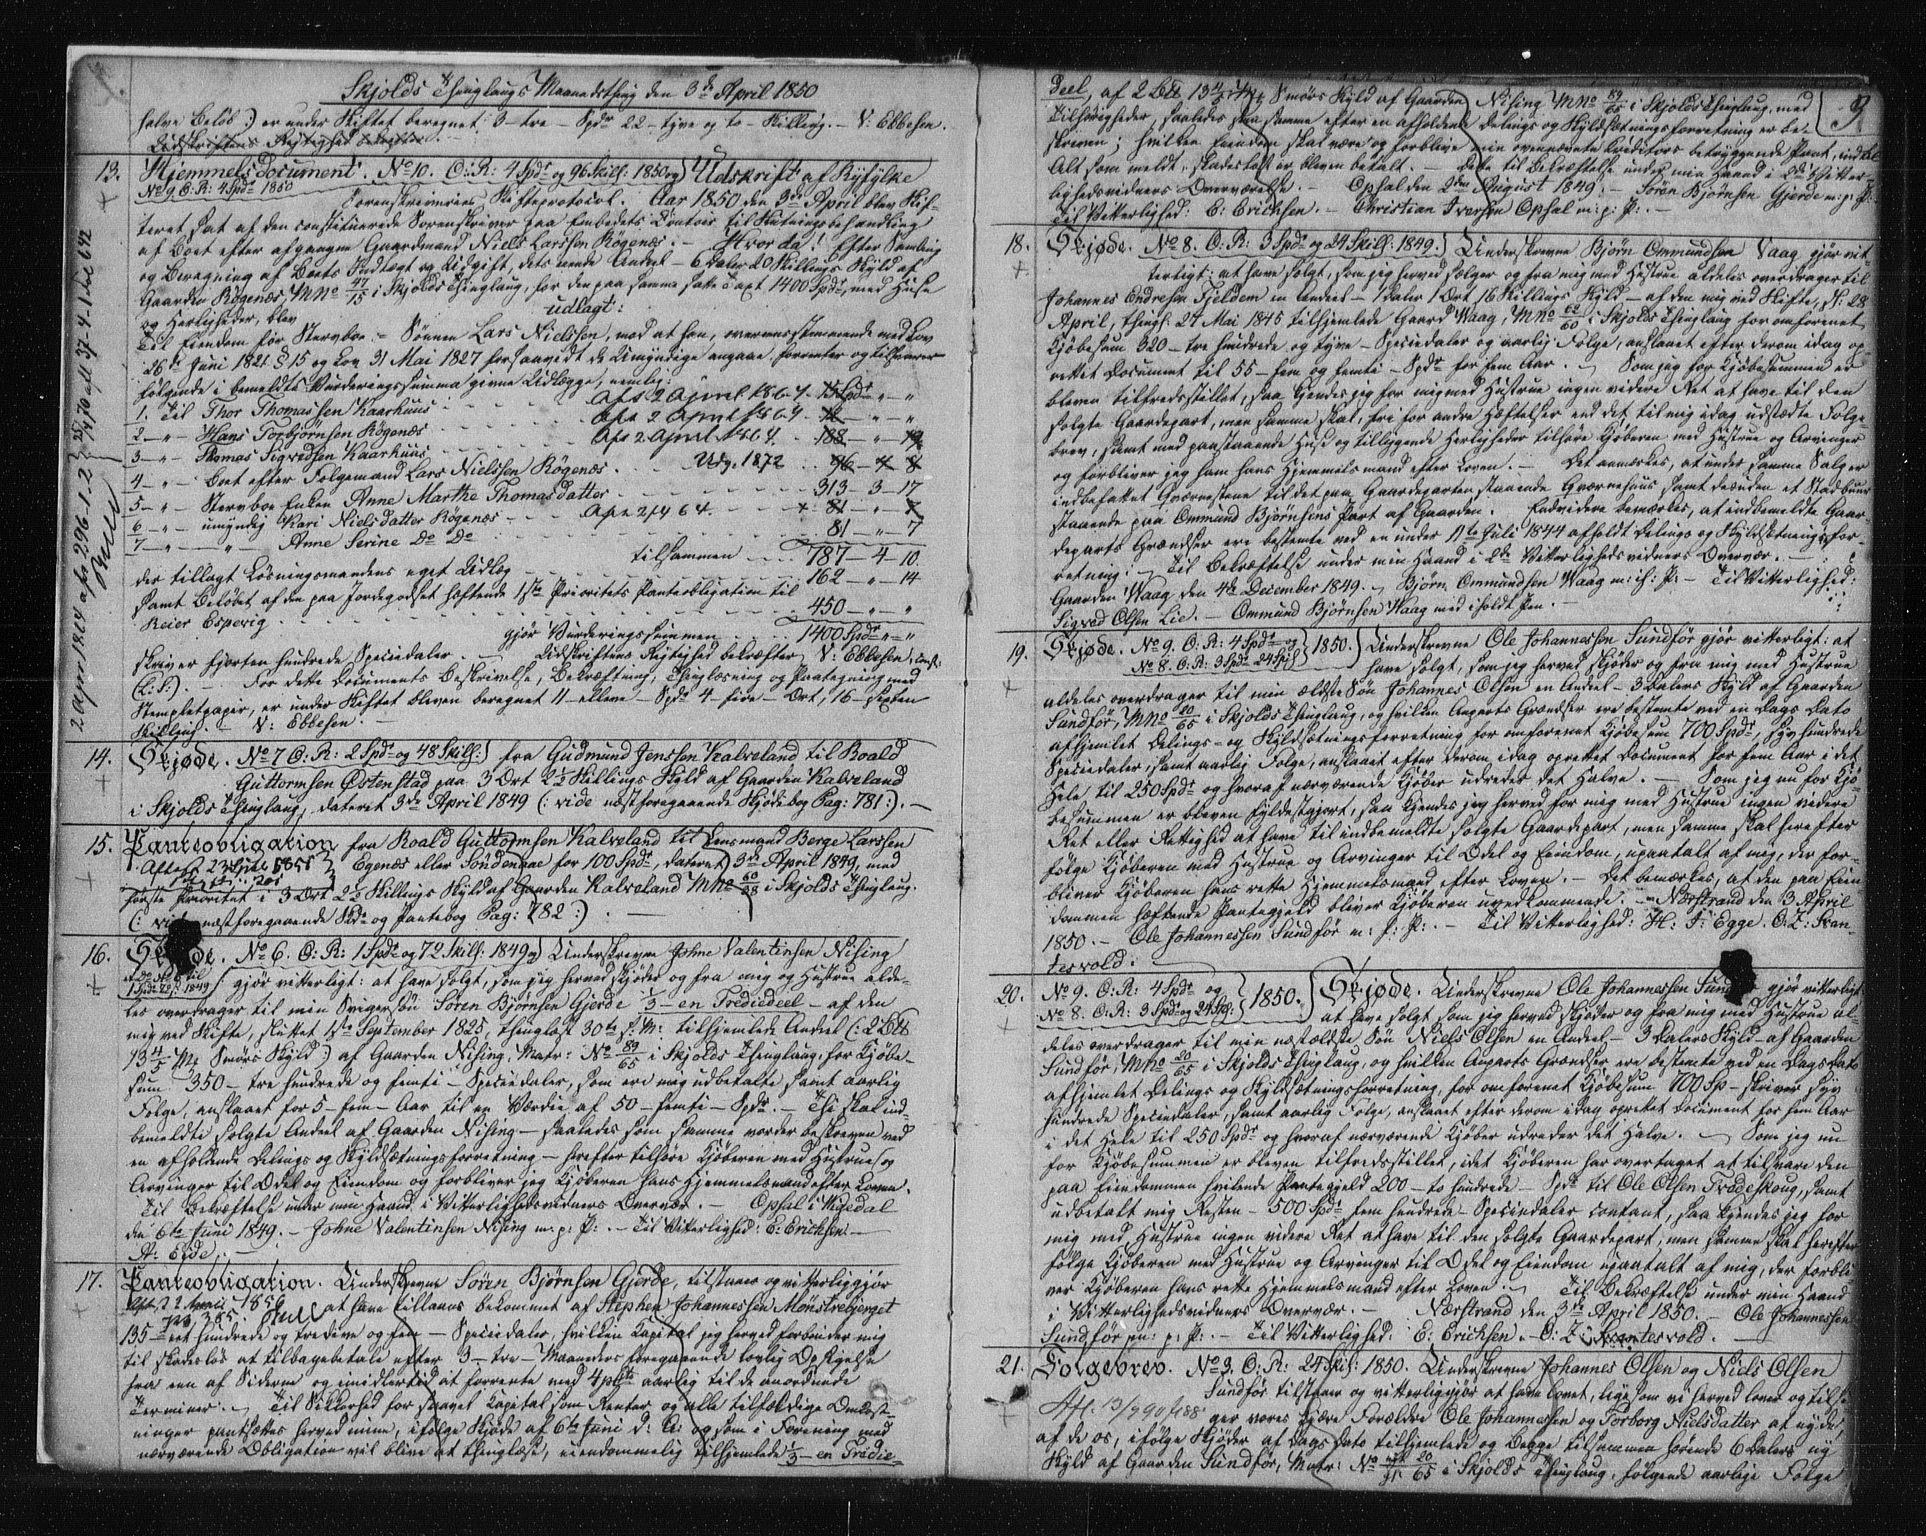 Skjolds Thinglaugs Maanedsthing den 3de April 1850
halve Beløb:) er under Skiftet beregnet 3 – tre – Spdr 22 – tyve og to – Skilling. – V: Ebbesen.
Udskriftens Rigtighed bekræftes.
13. Hjemmelsdocument. No 10. C: R: 4 Spdr og 96 Skill: 1850 og Udskrift af Ryfylke
No 9 C: R: 4 Spdr 1850
Sorenskriveries Skifteprotocol. Aar 1850 den 3de April blev Skif-
teret sat af den constituerede Sorenskriver paa Embedets Contoir til Slutningsbehandling
af Boet efter afgangne Gaardmand Niels Larssen Røgenæs. – Hvor da! Efter Samling
og Beregning af Boets Indtægt og Udgift, dets eiende Andeel – 6 Daler 20 Skillings Skyld af
Gaarden Røgenæs, M No 47/15 i Skjolds Thinglaug, for den paa samme satte Taxt 1400 Spdr, med Huse
og Herligheder, blev udlagt:
Til Eiendom for Stervboe – Sønnen Lars Nielssen, mod at han, overeensstemmende med Lov
26de Juni 1821 § 15 og Lov 31 Mai 1827 forsaavidt de Umyndige angaae, forrenter og tilsvarer
følgende i bemeldte Vurderingssumma givne Udlægge, nemlig:
1. Til Thor Thomassen Kaarhuus afs 2 April 1864. 15 Spdr „ – „
2 – „ – Hans Torbjørnsen Røgenæs afs 2 April 1864 12 – „ – „
3 – „ – Thomas Sigvedsen Kaarhuus afs 2 April 1864 188 – „ – 12
4 – „ – Boet efter Folgemand Lars Nielssen Røgenæs. Udg. 1872 96 – 4 – 8
5 – „ – Stervboe Enken Anne Marthe Thomasdatter 313 – 3 – 17
6 – „ – umyndig Kari Nielsdatter Røgenæs Afs 2/4 64. 81 – „ – 7
7 – „ – „ – Anne Serine Do Do 81 – „ – 7
tilsammen 787 – 4 – 10
der tillagt Løsningsmandens eget Udlæg 162 – „ – 14
Samt Beløbet af den paa Jordegodset hæftende 1ste Prioritets Panteobligation til
Reier Espevig 450 – „ – „
gjør Vurderingssummen 1400 Spdr „ – „
skriver fjorten hundrede Speciedaler. – Udskriftens Rigtighed bekræftes V: Ebbesen, const:
(L: S:). – For dette Documents Beskrivelse, Bekræftning, Thinglæsning og Paategning med
Stempletpapir, er under Skiftet bleven beregnet 11 – elleve – Spdr 4 – fire – Ort, 16 – sexten
Skilling. – V: Ebbesen. –
2 April 1864 afs 296-1-2
14. Skjøde. No 7 C: R: 2 Spdr og 48 Skill: fra Gudmund Jenssen Kalveland til Roald
Guttormsen Østenstad paa 3 Ort 2 1/2 Skillings Skyld af Gaarden Kalveland
i Skjolds Thinglaug, dateret 3de April 1849 (: vide næstforegaaende Skjødebog Pag: 781:). –
15. Panteobligation fra Roald Guttormsen Kalveland til Lensmand Børge Larssen
Egenæs eller Søndenaae for 100 Spdr, dateret 3de April 1849, med
første Prioritet i 3 Ort 2 1/2 Skillings Skyld af Gaarden Kalveland M No 60/28 i Skjolds Thinglaug.
(: vide næstforegaaende Skjøde og Pantebog Pag: 782:). –
16. Skjøde. No 6. C: R: 1 Spdr og 72 Skill: 1849 og Underskrevne Johne Valentinsen Nising
gjør vitterligt: at have solgt, som jeg herved skjøder og fra mig og Hustrue alde-
les overdrager til min Svigersøn Søren Bjørnsen Gjerde 1/3 – en Trediedeel – af den
mig ved Skifte, sluttet 1ste September 1825, thinglæst 30te s: M: tilhjemlede Andeel (: 2 Lb
13 4/5 Mk Smørs Skyld:) af Gaarden Nising, Matr: No 89/65 i Skjolds Thinglaug, for Kjøbe-
sum 350 – tre hundrede og femti – Speciedaler, som ere mig udbetalte samt aarlig
Folge, anslaaet for 5 – fem – Aar til en Værdie af 50 – femti – Spdr. – Thi skal ind-
bemeldte solgte Andeel af Gaarden Nising – saaledes som samme vorder beskreven ved
en afholdende Delings og Skyldsætningsforretning – herefter tilhøre Kjøberen med Hustrue og
Arvinger til Odel og Eiendom og forbliver jeg Kjøberen hans Hjemmelsmand efter Loven.
Til Bekræftelse under min Haand i Vitterlighedsvidners Overvær. – Opsal i Vigedal
den 6te Juni 1849. – Johne Valentinsen Nising m. p: P:. – Til Vitterlighed: E: Ericksen –
A: Eide. –
17. Panteobligation. Underskrevne Søren Bjørnsen Gjerde, tilstaaer og vitterliggjør
at have tillaans bekommet af Stephen Johannessen Mønstrebjerget
135 – et hundrede og tredive og fem – Speciedaler, hvilken Capital jeg herved forbinder mig
til skadesløs at tilbagebetale efter 3 – tre – Maaneders foregaaende lovlig Opsigelse
fra een af Siderne og imidlertid at forrente med 4 pCt aarlig til de anordnede
Terminer. – Til Sikkerhed for saavel Capital som Renter og alle tilfældige Omkost-
ninger pantsættes herved mine, ifølge Skjøde af 6te Juni d: A: og som i Forening med
nærværende Obligation vil blive at thinglæse, eiendommelig tilhjemlede 1/3 – en Tredie-
9
deel, af 2 Lb 13 4/5 Mk Smørs Skyld af Gaarden Nising M No 89/65 i Skjolds Thinglaug, med
Tilhørigheder, saaledes paa samme efter en afholdende Delings og Skyldsætningsforretning er be-
skreven; hvilken Eiendom skal være og forblive min ovennævnte Creditors betryggende Pant, indtil
Alt som meldt, skadesløst er bleven betalt. – Dette til Bekræftelse under min Haand i 2de Vitter-
lighedsvidners Overværelse. – Opsal den 2den August 1849. – Søren Bjørnsen Gjerde m: p: P:.
Til Vitterlighed: E: Ericksen. – Christian Iversen Opsal m: p: P:. –
18. Skjøde. No 8. C: R: 3 Spdr og 24 Skill: 1849. Underskrevne Bjørn Ommundsen Vaag gjør vit-
terligt: at have solgt, som jeg herved sælger og fra mig med Hustrue aldeles overdrager til
Johannes Endresen Fjeldem en Andeel – 1 Daler 1 Ort 16 Skillings Skyld – af den mig ved Skifte, sl: 28
April, thingl: 27 Mai 1845 tilhjemlede Gaard Waag, M No 62/60 i Skjolds Thinglaug for omforenet
Kjøbesum 320 – tre hundrede og tyve – Speciedaler og aarlig Folge, anslaaet efter derom idag op-
rettet Document til 55 – fem og femti – Spdr for fem Aar. – Som jeg for Kjøbesummen er
bleven tilfredsstillet, saa kjendes jeg for mig med Hustrue ingen videre Ret at have til den
solgte Gaardepart, men samme skal, fri for andre Hæftelser end det til mig idag udstædte Folge-
brev, samt med paastaaende Huse og tilliggende Herligheder tilhøre Kjøberen med Hustrue og Arvinger
og forbliver jeg ham hans Hjemmelsmand efter Loven. – Det anmærkes, at under samme Salg er
indbefattet Qværnestene til det paa Gaardeparten staaende Qværnehuus samt desuden et Stadbuur
staaende paa Ommund Bjørnsens Part af Gaarden. – Endvidere bemærkes, at indbemeldte Gaar-
departs Grændser ere bestemte ved en under 11te Juli 1844 afholdt Delings og Skyldsætningsfor-
retning. – Til Bekræftelse under min Haand i 2de Vitterlighedsvidners Overvær. –
Gaarden Waag den 4de December 1849. – Bjørn Ommundsen Waag m: ih: P:. – Til Vitterlighed:
Sigved Olsen Lie. – Ommund Bjørnsen Waag med iholdt Pen. –
19. Skjøde. No 9. C: R: 4 Spdr og 1850. Underskrevne Ole Johannessen Sundfør gjør vitterligt: at
No 8. C: R: 3 Spdr 24 Skill have solgt, som jeg herved skjøder og fra mig med Hustrue
aldeles overdrager til min ældste Søn Johannes Olsen en Andeel – 3 Dalers Skyld af Gaarden
Sundfør, M No 20/65 i Skjolds Thinglaug, og hvilken Anparts Grændser ere bestemte ved en Dags Dato
afhjemlet Delings- og Skyldsætningsforretning for omforenet Kjøbesum 700 Spdr, syv hundrede
Speciedaler, samt aarlig Folge, anslaaet efter derom idag oprettet Document for fem Aar i det
Hele til 250 Spdr og hvoraf nærværende Kjøber udreder det Halve. – Som jeg nu for Kjø-
besummen er bleven fyldestgjort, saa kjendes jeg herved for mig med Hustrue ingen videre
Ret eller Rettighed at have til indbemeldte solgte Gaardepart, men samme skal herefter
følge Kjøberen med Hustrue og Arvinger til Odel og Eiendom, upaatalt af mig, der for-
bliver Kjøberen hans rette Hjemmelsmand efter Loven. – Det bemærkes, at den paa Eien-
dommen hæftende Pantegjeld bliver Kjøberen uvedkommende. – Nærstrand den 3 April
1850. – Ole Johannessen Sundfør m: p: P:. – Til Vitterlighed: H: F: Egge. O. Z. Svan-
tesvold.
20. No 9. C: R: 4 Spdr og 1850. Skjøde. Underskrevne Ole Johannessen Sundfør gjør vitterligt
No 8. C: R: 3 Spdr og 24 Skill: at have solgt som jeg herved skjøder og fra mig med Hustrue al-
deles overdrager til min næstældste Søn Niels Olsen en Andeel – 3 Dalers Skyld – af Gaarden
Sundfør, M No 20/65 i Skjolds Thinglaug, og hvilken Anparts Grændser ere bestemte ved en Dags Dato
afhjemlet Delings og Skyldsætningsforretning, for omforenet Kjøbesum 700 Sp – skriver syv
hundrede Speciedaler, samt aarlig Folge, anslaaet efter derom idag oprettet Document for fem Aar
i det Hele til 250 Spdr og hvoraf nærværende Kjøber udreder det Halve. – Som jeg nu
for Kjøbesummen er bleven tilfredsstillet, idet Kjøberen har overtaget at tilsvare den
paa Eiendommen hvilende Pantegjeld 200 – to hundrede – Spdr til Ole Olsen Frødeskoug, samt
udbetalt mig Resten – 500 Spdr fem hundrede – Speciedaler contant, saa kjendes jeg for
mig med Hustrue ingen videre Ret at have til den solgte Gaardepart, men samme skal herefter
følge Kjøberen med Hustrue og Arvinger til Odel og Eiendom upaatalt af mig, der forbli-
ver Kjøberen hans rette Hjemmelsmand efter Loven. – Til Bekræftelse under min Haand
i Vitterlighedsvidners Overvær. – Nærstrand den 3de April 1850. – Ole Johannessen
Sundfør m: p: P:. – Til Vitterlighed: E: Ericksen. – O: Z: Svantesvold. –
21. Folgebrev. No 3. C: R: 24 Skill: 1850. Underskrevne Johannes Olsen og Niels Olsen
Sundfør tilstaaer og vitterliggjør at have lovet, ligesom vi herved lover og tilsi-
ger vores kjære Forældre Ole Johannessen og Torborg Nielsdatter at nyde
af de os, ifølge Skjøder af Dags Dato tilhjemlede og begge tilsammen førende 6 Dalers ny
Skyld af Gaarden Sundfør, Matr: No 20/65 i Skjolds Thinglaug, følgende aarlige Folge